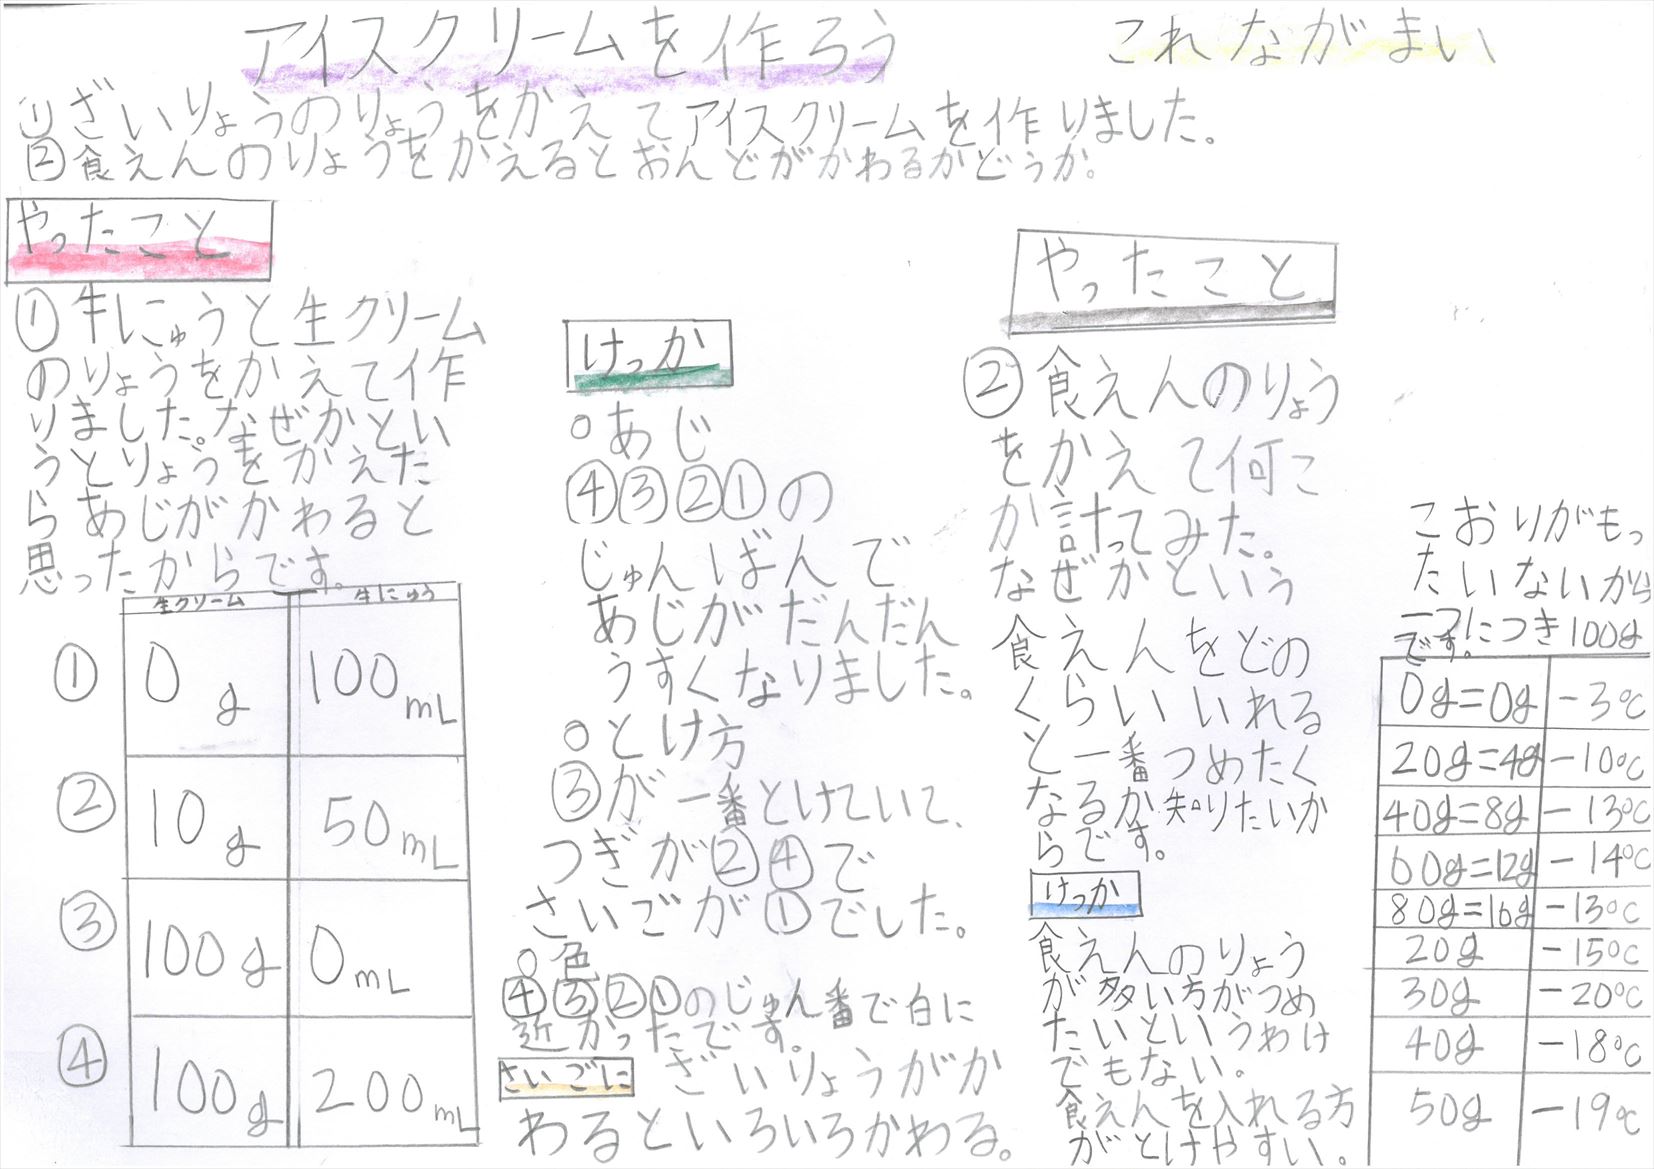 アイスクリームを作ろう
これながまい
①ざいりょうのりょうをかえてアイスクリームを作りました。
②食えんのりょうをかえるとおんどがかわるかどうか。
やったこと
①牛にゅうと生クリーム
のりょうをかえて作
りました。なぜかとい
うとりょうをかえた
らあじがかわると
思ったからです。
生クリーム 牛にゅう
① 0g 100mL
② 10g 50mL
③ 100g 0mL
④ 100g 200mL
けっか
○あじ
④③②①の
じゅんばんで
あじがだんだん
うすくなりました。
○とけ方
③が一番とけていて、
つぎが②④で
さいごが①でした。
○色
④③②①のじゅん番で白に
近かったです。
さいごに ざいりょうがか
わるといろいろかわる。
やったこと
②食えんのりょう
をかえて何こ
か計ってみた。
なぜかという
食えんをどの
くらいいれる
と一番つめたく
なるか知りたいか
らです。
けっか
食えんのりょう
が多い方がつめ
たいというわけ
でもない。
食えんを入れる方
がとけやすい。
こおりがもっ
たいないから
一つにつき100g
です!
0g=0g -3℃
20g=4g -10℃
40g=8g -13℃
60g=12g -14℃
80g=16g -13℃
20g -15℃
30g -20℃
40g -18℃
50g -19℃